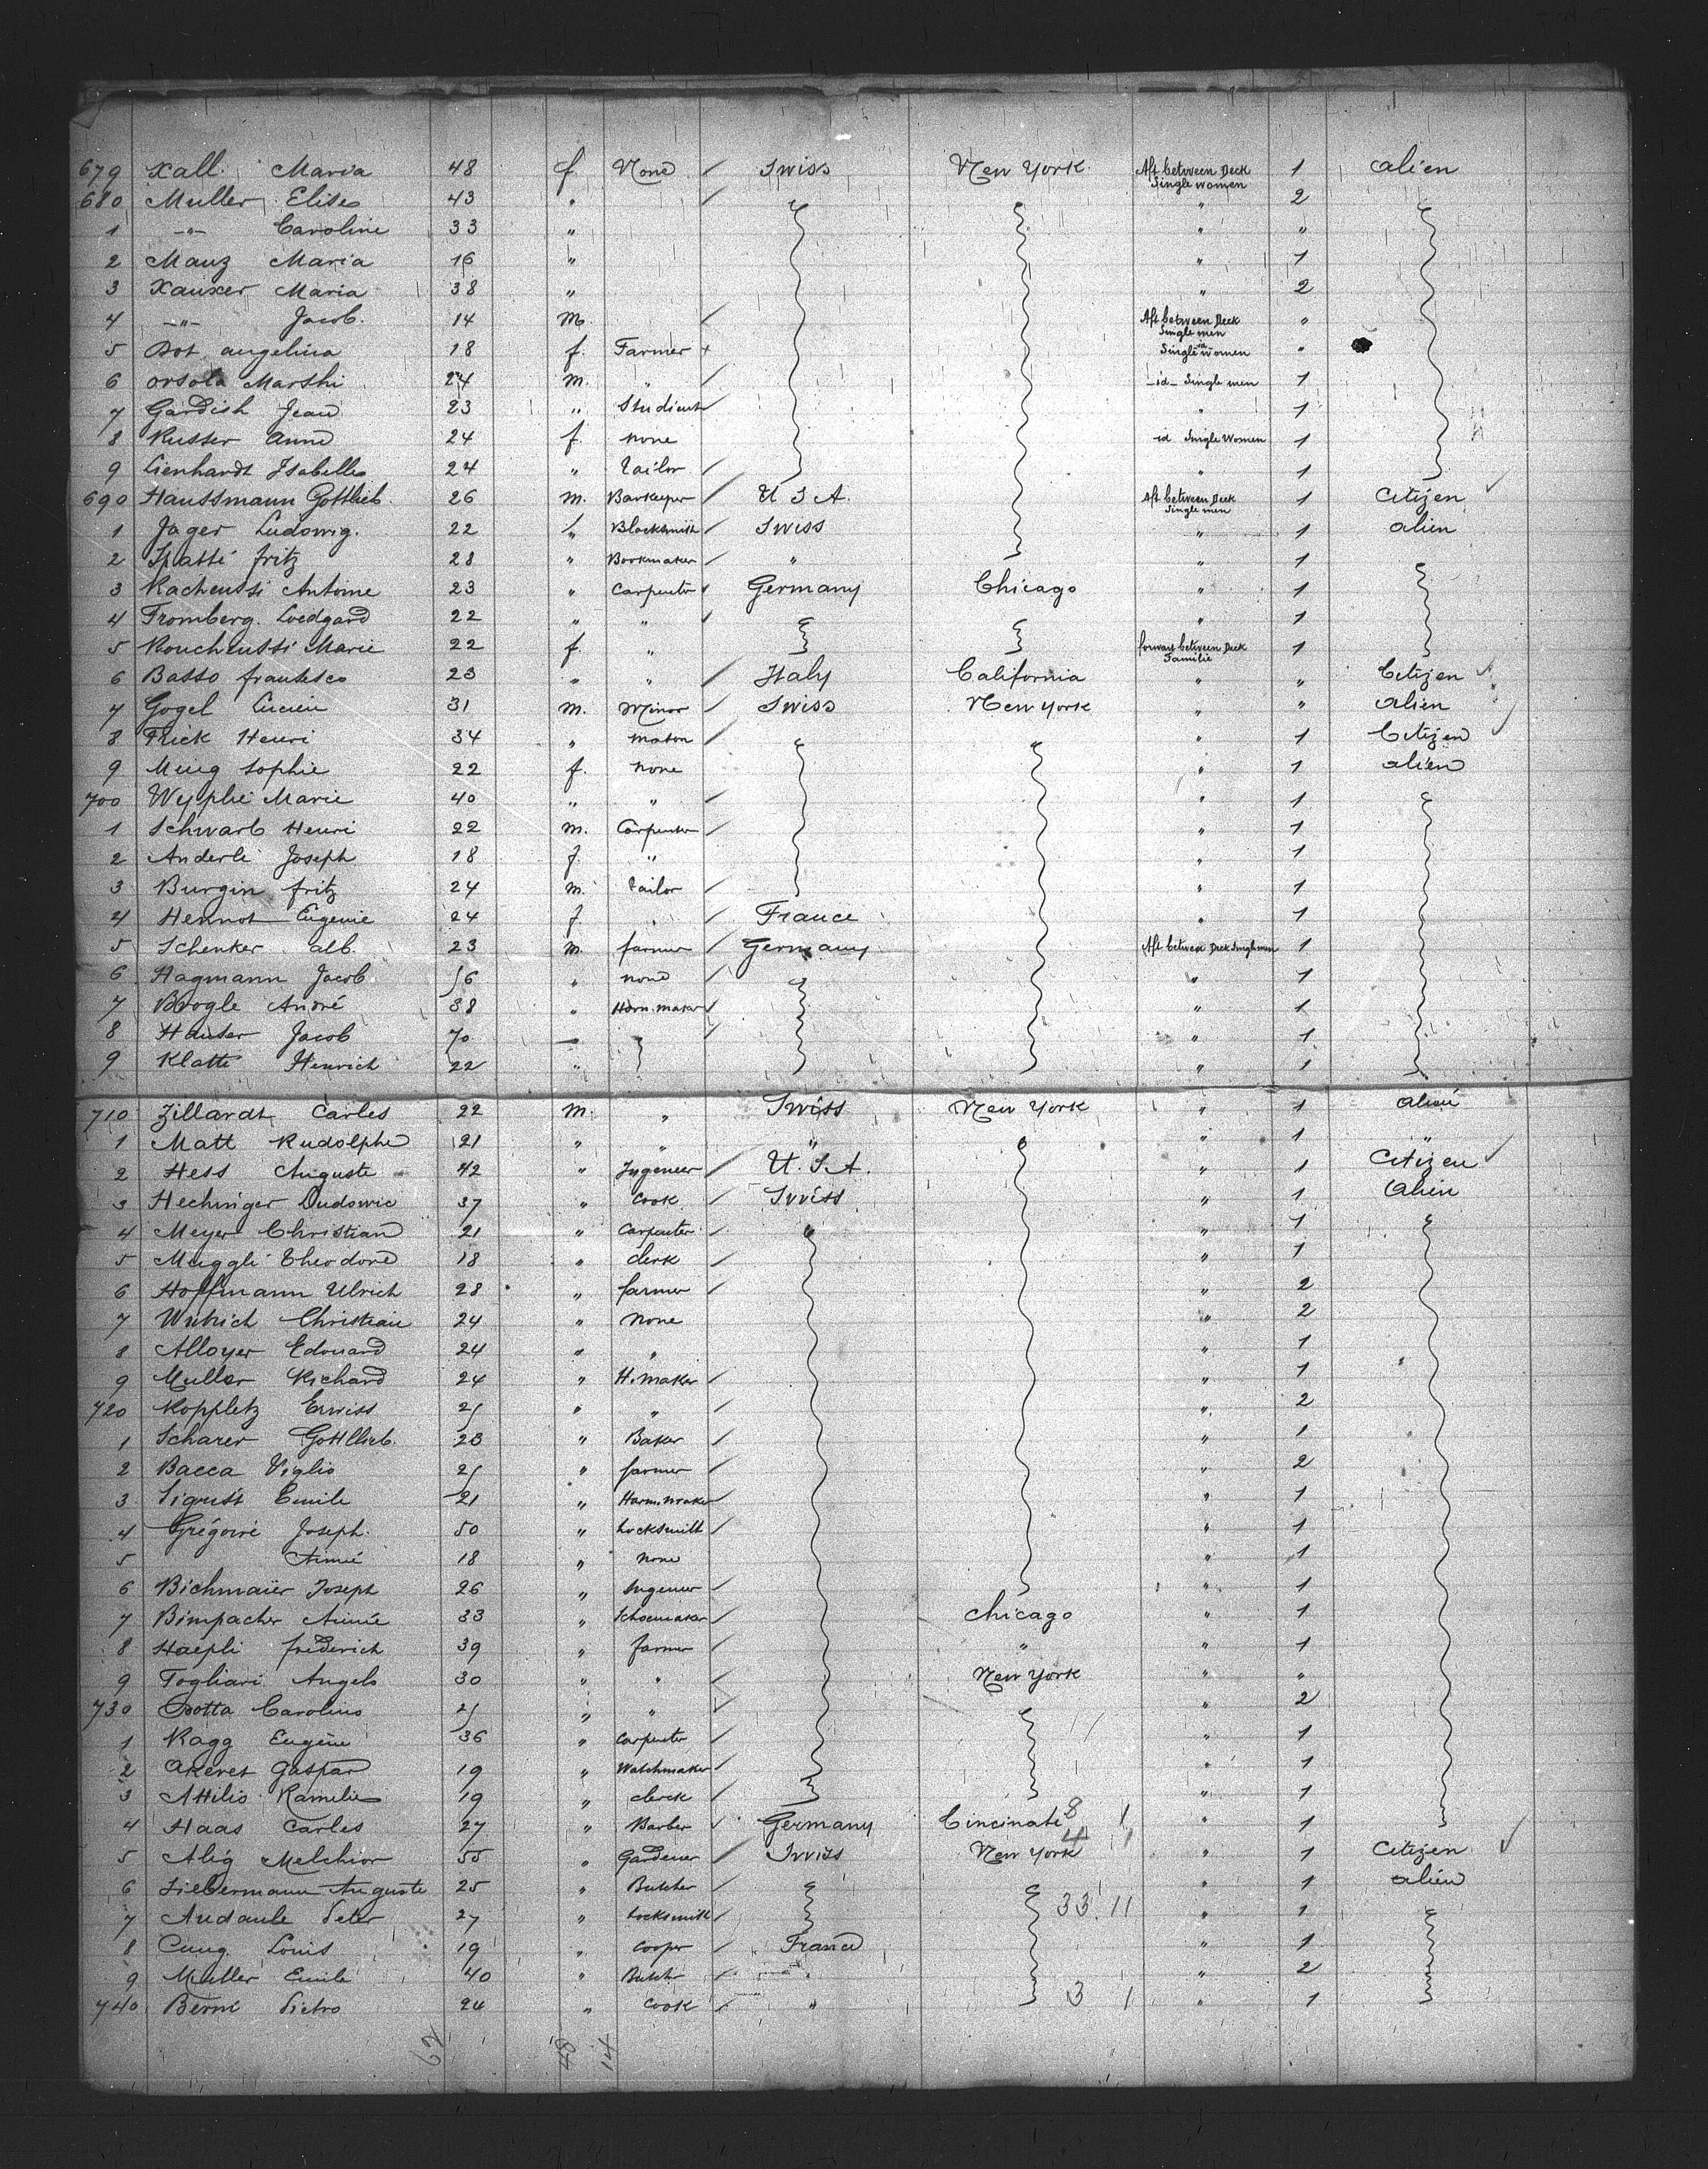 679 Kall. Maria 48 f. None / Swiss New York Aft between Deck Single women 1 alien
680 Muller Elise 43 " / " 2
1 —"— Caroline 33 " " "
2 Manz Maria 16 " " 1
3 Kauxer Maria 38 " " 2
4 —"— Jacob. 14 m. / Aft between Deck Single men "
5 Bot angelina 18 f. Farmer + Single women "
6 orsola Marthi 24 m. " / -id- Single men 1
7 Gardish Jean 23 " Studient / " 1
8 Russer Anna 24 f. none id Single Women 1
9 Lienhardt Isabelle 24 " tailor / " 1
690 Haussmann Gottlieb. 26 m. Barkeeper / U S A. Aft between Deck Single men 1 Citizen
1 Jager Ludowig. 22 " Blacksmith / Swiss " 1 alien
2 Spatti fritz 28 " Bookmaker / " " 1
3 Racheussi Antoine 23 " Carpenter Germany Chicago " 1
4 Fromberg. Loedgard 22 " " / " 1
5 Roucheussi Marie 22 f. " forward between Deck Familie 1
6 Basso fransesco 23 " " / Italy California " " Citizen
7 Gogel Lucien 31 m. Minor / Swiss New York " " alien
8 Frick Henri 34 " mason / " 1 Citizen
9 Meng Sophie 22 f. none " 1 alien
700 Wyphi Marie 40 " " / " 1
1 Schwarb Henri 22 m. Carpenter / " 1
2 Anderli Joseph 18 f. " " 1
3 Burgin fritz 24 m. tailor / " 1
4 Hennot Eugenie 24 f " / France " 1
5 Schenker alb. 23 m. farmer / Germany Aft between Deck Single men 1
6 Hagmann Jacob 56 " none / " 1
7 Boogle André 38 " Harn. maker / " 1
8 Hauser Jacob 70 / " 1
9 Klatte Henrich 22 " " 1
710 Zillardt Carles 22 m. " Swiss New York " 1 alien
1 Matt Rudolphe 21 " " " " 1 "
2 Hess Auguste 42 " Ingeneer / U. S. A. " 1 Citizen
3 Hechinger Ludowic 37 " cook / Swiss " 1 alien
4 Meyer Christian 21 " Carpenter / " 1
5 Muggli Theodore 18 " clerk / " 1
6 Hoffmann Ulrich 28 " farmer / " 2
7 Wutrich Christian 24 " none " 2
8 Alloyer Edouard 24 " " " 1
9 Muller Richard 24 " H. maker / " 1
720 Koppletz Erwiss 25 " " / " 2
1 Scharer Gottlieb. 23 " Baker / " 1
2 Bacca Viglio 25 " farmer / " 2
3 Sigrist Emile 21 " Harn. maker / " 1
4 Grégoire Joseph. 50 " Locksmith / " 1
5 Aimé 18 " none " 1
6 Bichmaier Joseph 26 " Ingeneer / " 1
7 Bimpacher Aimée 33 " Schoemaker / Chicago " 1
8 Haepli frederich 39 " farmer / " " 1
9 Fogliari Angelo 30 " " / New York " "
730 Botta Carolino 25 " " / " 2
1 Ragg Eugène 36 " Carpenter / " 1
2 Akeret Gaspar 19 " Watchmaker / " 1
3 Attilio Ramelie 19 " clerck / " 1
4 Haas Carles 27 " Barber Germany Cincinati 8 1 " 1
5 Alig Melchior 55 " Gardener / Swiss New York 4 1 " 1 Citizen
6 Liebermann Auguste 25 " Butcher / " 1 alien
7 Andaule Peter 27 " Locksmith / 33 11 " 1
8 Cung. Louis 19 " Cooper / France " 1
9 Muller Emile 40 " Butcher / " 2
740 Berni Pietro 24 " cook / " 3 1 " 1